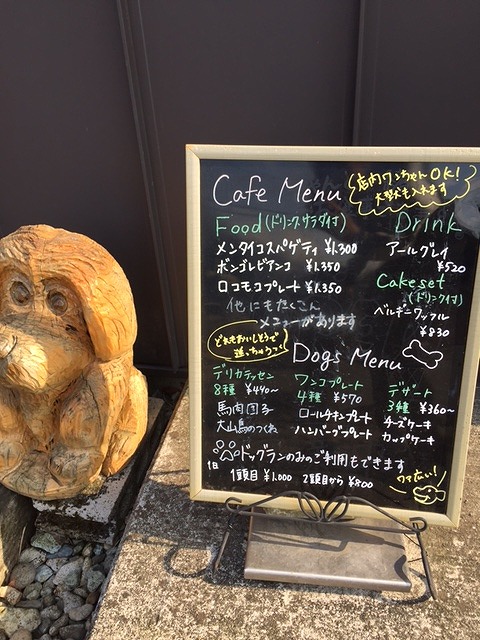 Cafe Menu
店内ワンちゃんOK!
大型犬も入れます
Food(ドリンク、サラダ付)
メンタイコスパゲティ ¥1.300
ボンゴレビアンコ ¥1.350
ロコモコプレート ¥1.350
他にもたくさん
メニューがあります
Drink
アールグレイ
¥520
Cakeset
(ドリンク付)
ベルギーワッフル
¥830
どれもおいしそうで
迷っちゃうっ!
Dogs Menu
デリカテッセン
8種 ¥440~
馬肉団子
大山鳥のつくね
ワンコプレート
4種 ¥570
ロールチキンプレート
ハンバーグプレート
デザート
3種 ¥360~
チーズケーキ
カップケーキ
ドッグランのみのご利用もできます
1日 1頭目 ¥1.000 2頭目から ¥800
広い!